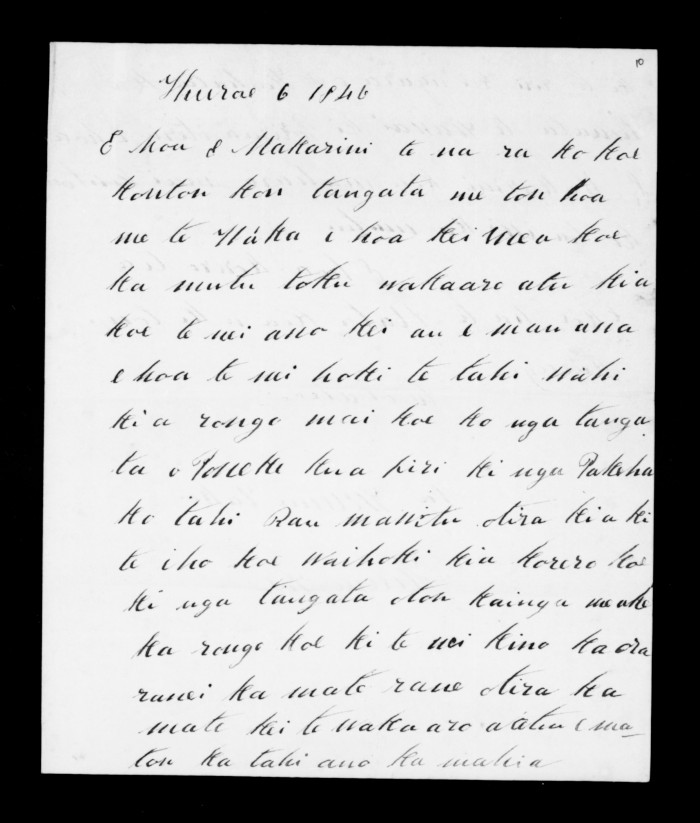 10
Hurae 6 1846
E hoa E Makarini te na ra ko koe
koutou kou tangata me tou hoa
me te Waka e hoa kei mea koe
ka mutu toku wakaaro atu kia
koe te nei ano kei au e mau ana
e hoa te nei hoki te tahi wahi
kia rongo mai koe ko nga tanga
ta o Poneke kua piri ki nga Pakeha
ko tahi Rau ma witu otira kia ki
te iho koe waihoki kia korero koe
ki nga tangata otou kainga meake
ka rongo koe ki te nei kino ka ora
ranei ka mate rane otira ka
mate kei te wakaaro e ma_
tou ka tahi ano ka mahia